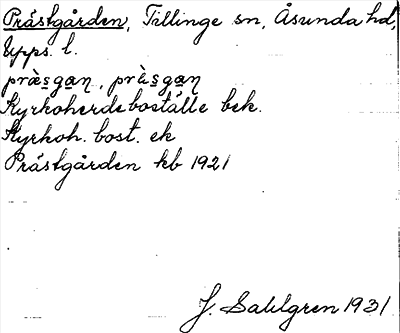 Prästgården, Tillinge sn, Åsunda hd,
Upps. l.
præ̀sga̱n, prà̈sga̱n
Kyrkoherdeboställe bek.
Kyrkoh. bost. ek
Prästgården kb 1921
J. Sahlgren 1931